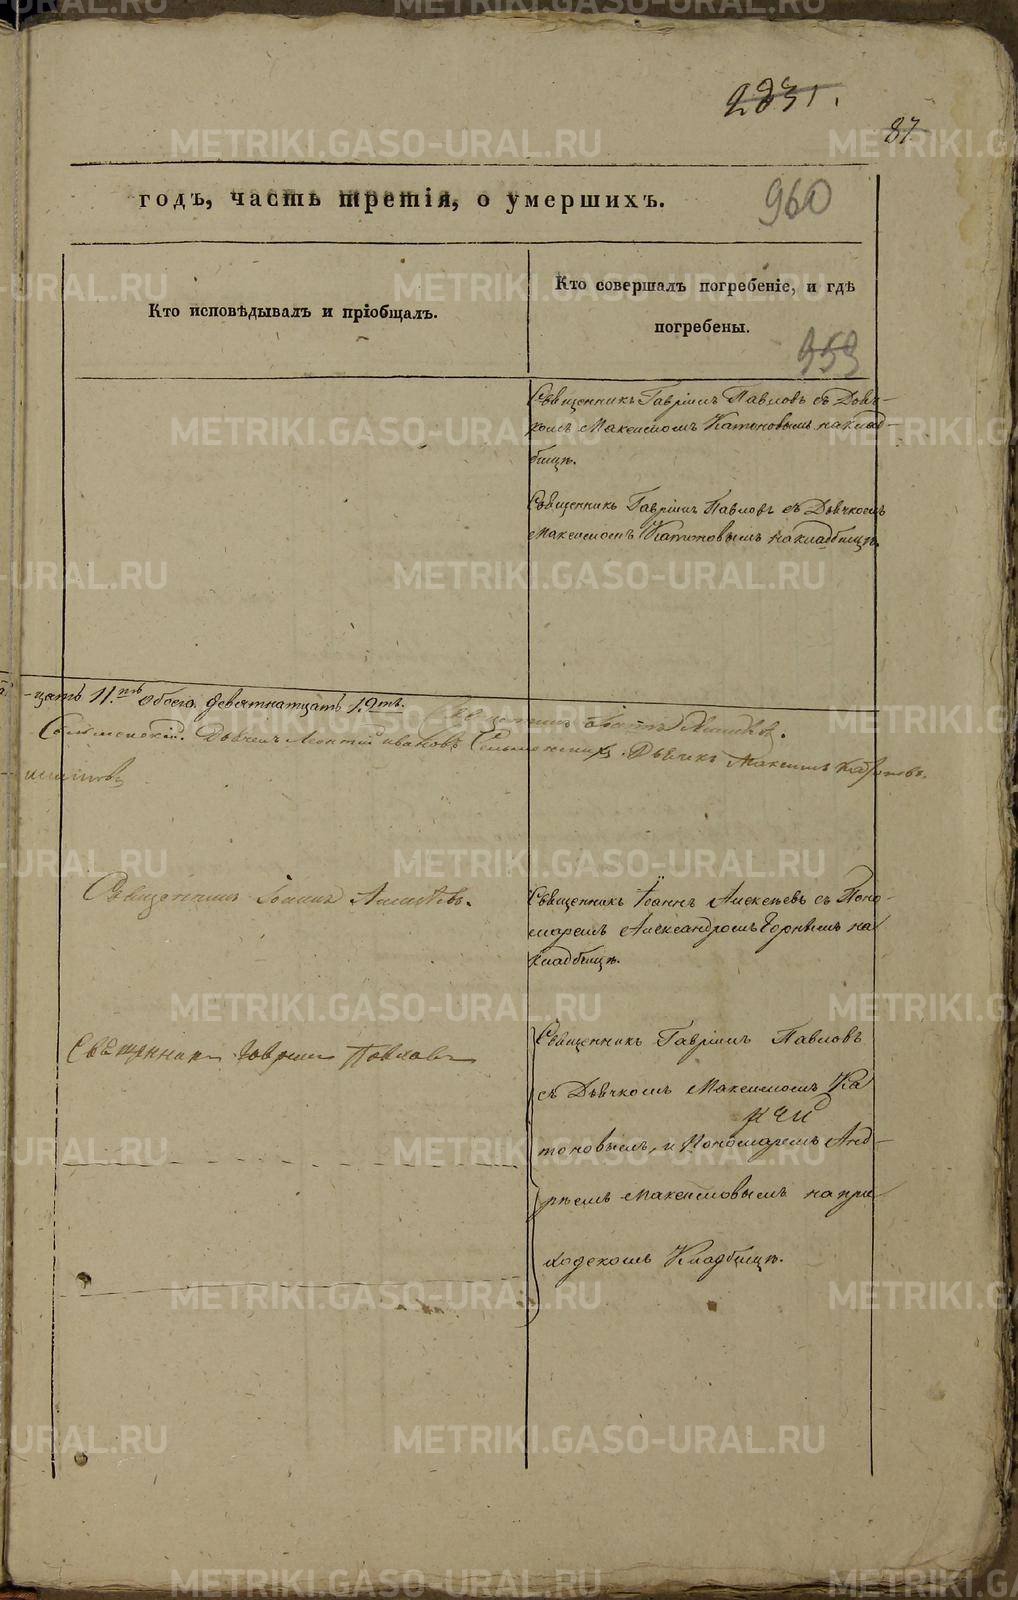 2031.
87
годъ, часть третія, о умершихъ.
960
Кто исповѣдывалъ и пріобщалъ.
Кто совершалъ погребеніе, и гдѣ
погребены.
959
Священникъ Гавріилъ Павловъ съ Дьяч-
комъ Максимомъ Катоновымъ на клад-
бищѣ.
Священникъ Гавріилъ Павловъ съ Дьячкомъ
Максимомъ Катоновымъ на кладбищѣ.
-цать 11. обоего девятнатцать 19ть.
Священникъ
Дьячекъ Леонтій Ивановъ Дьячекъ Максимъ Катоновъ.
Священникъ Іоаннъ Алексѣевъ.
Священникъ Іоаннъ Алексѣевъ съ Поно-
маремъ Александромъ на
Кладбищѣ.
Священникъ Гавріилъ Павловъ
Священникъ Гавріилъ Павловъ
съ Дьячкомъ Максимомъ Ка
тоновымъ, и Пономаремъ Анд-
рѣемъ Максимовымъ на при
ходскомъ Кладбищѣ.
METRIKI.GASO-URAL.RU